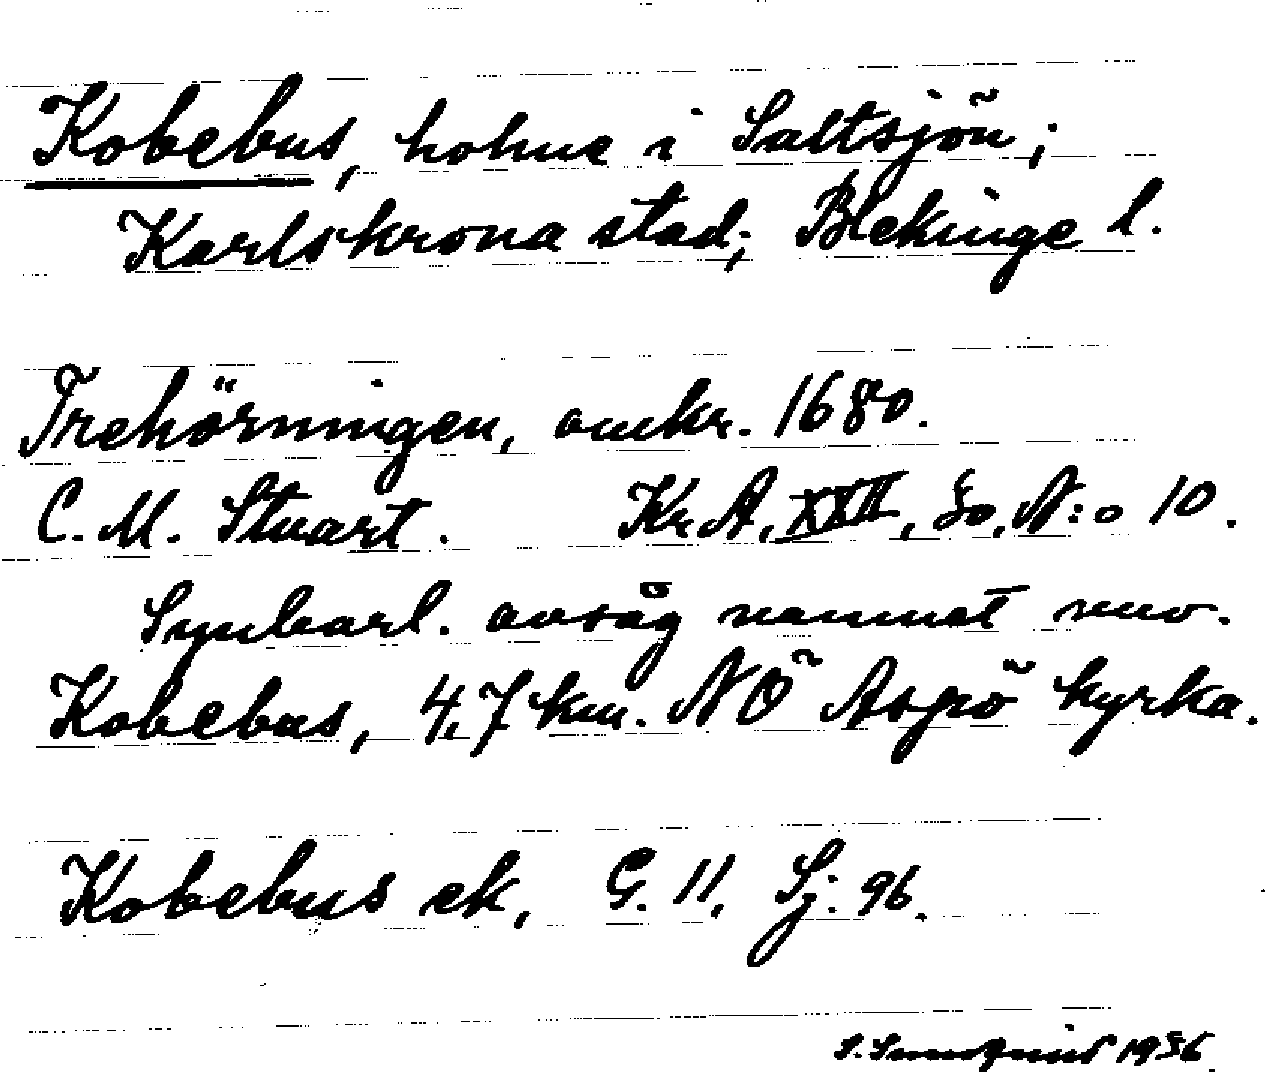 Kobebus, holme i Saltsjön;
Karlskrona stad; Blekinge l.
Trehörningen, omkr. 1680.
C. M. Stuart. Kr A, XXII, Fo, N:o 10.
Synbarl. avsåg namnet nuv.
Kobebus, 4,7 km. NÖ Aspö kyrka.
Kobebus ek, G. 11, Sj: 96.
S. Sundqvist 1936.